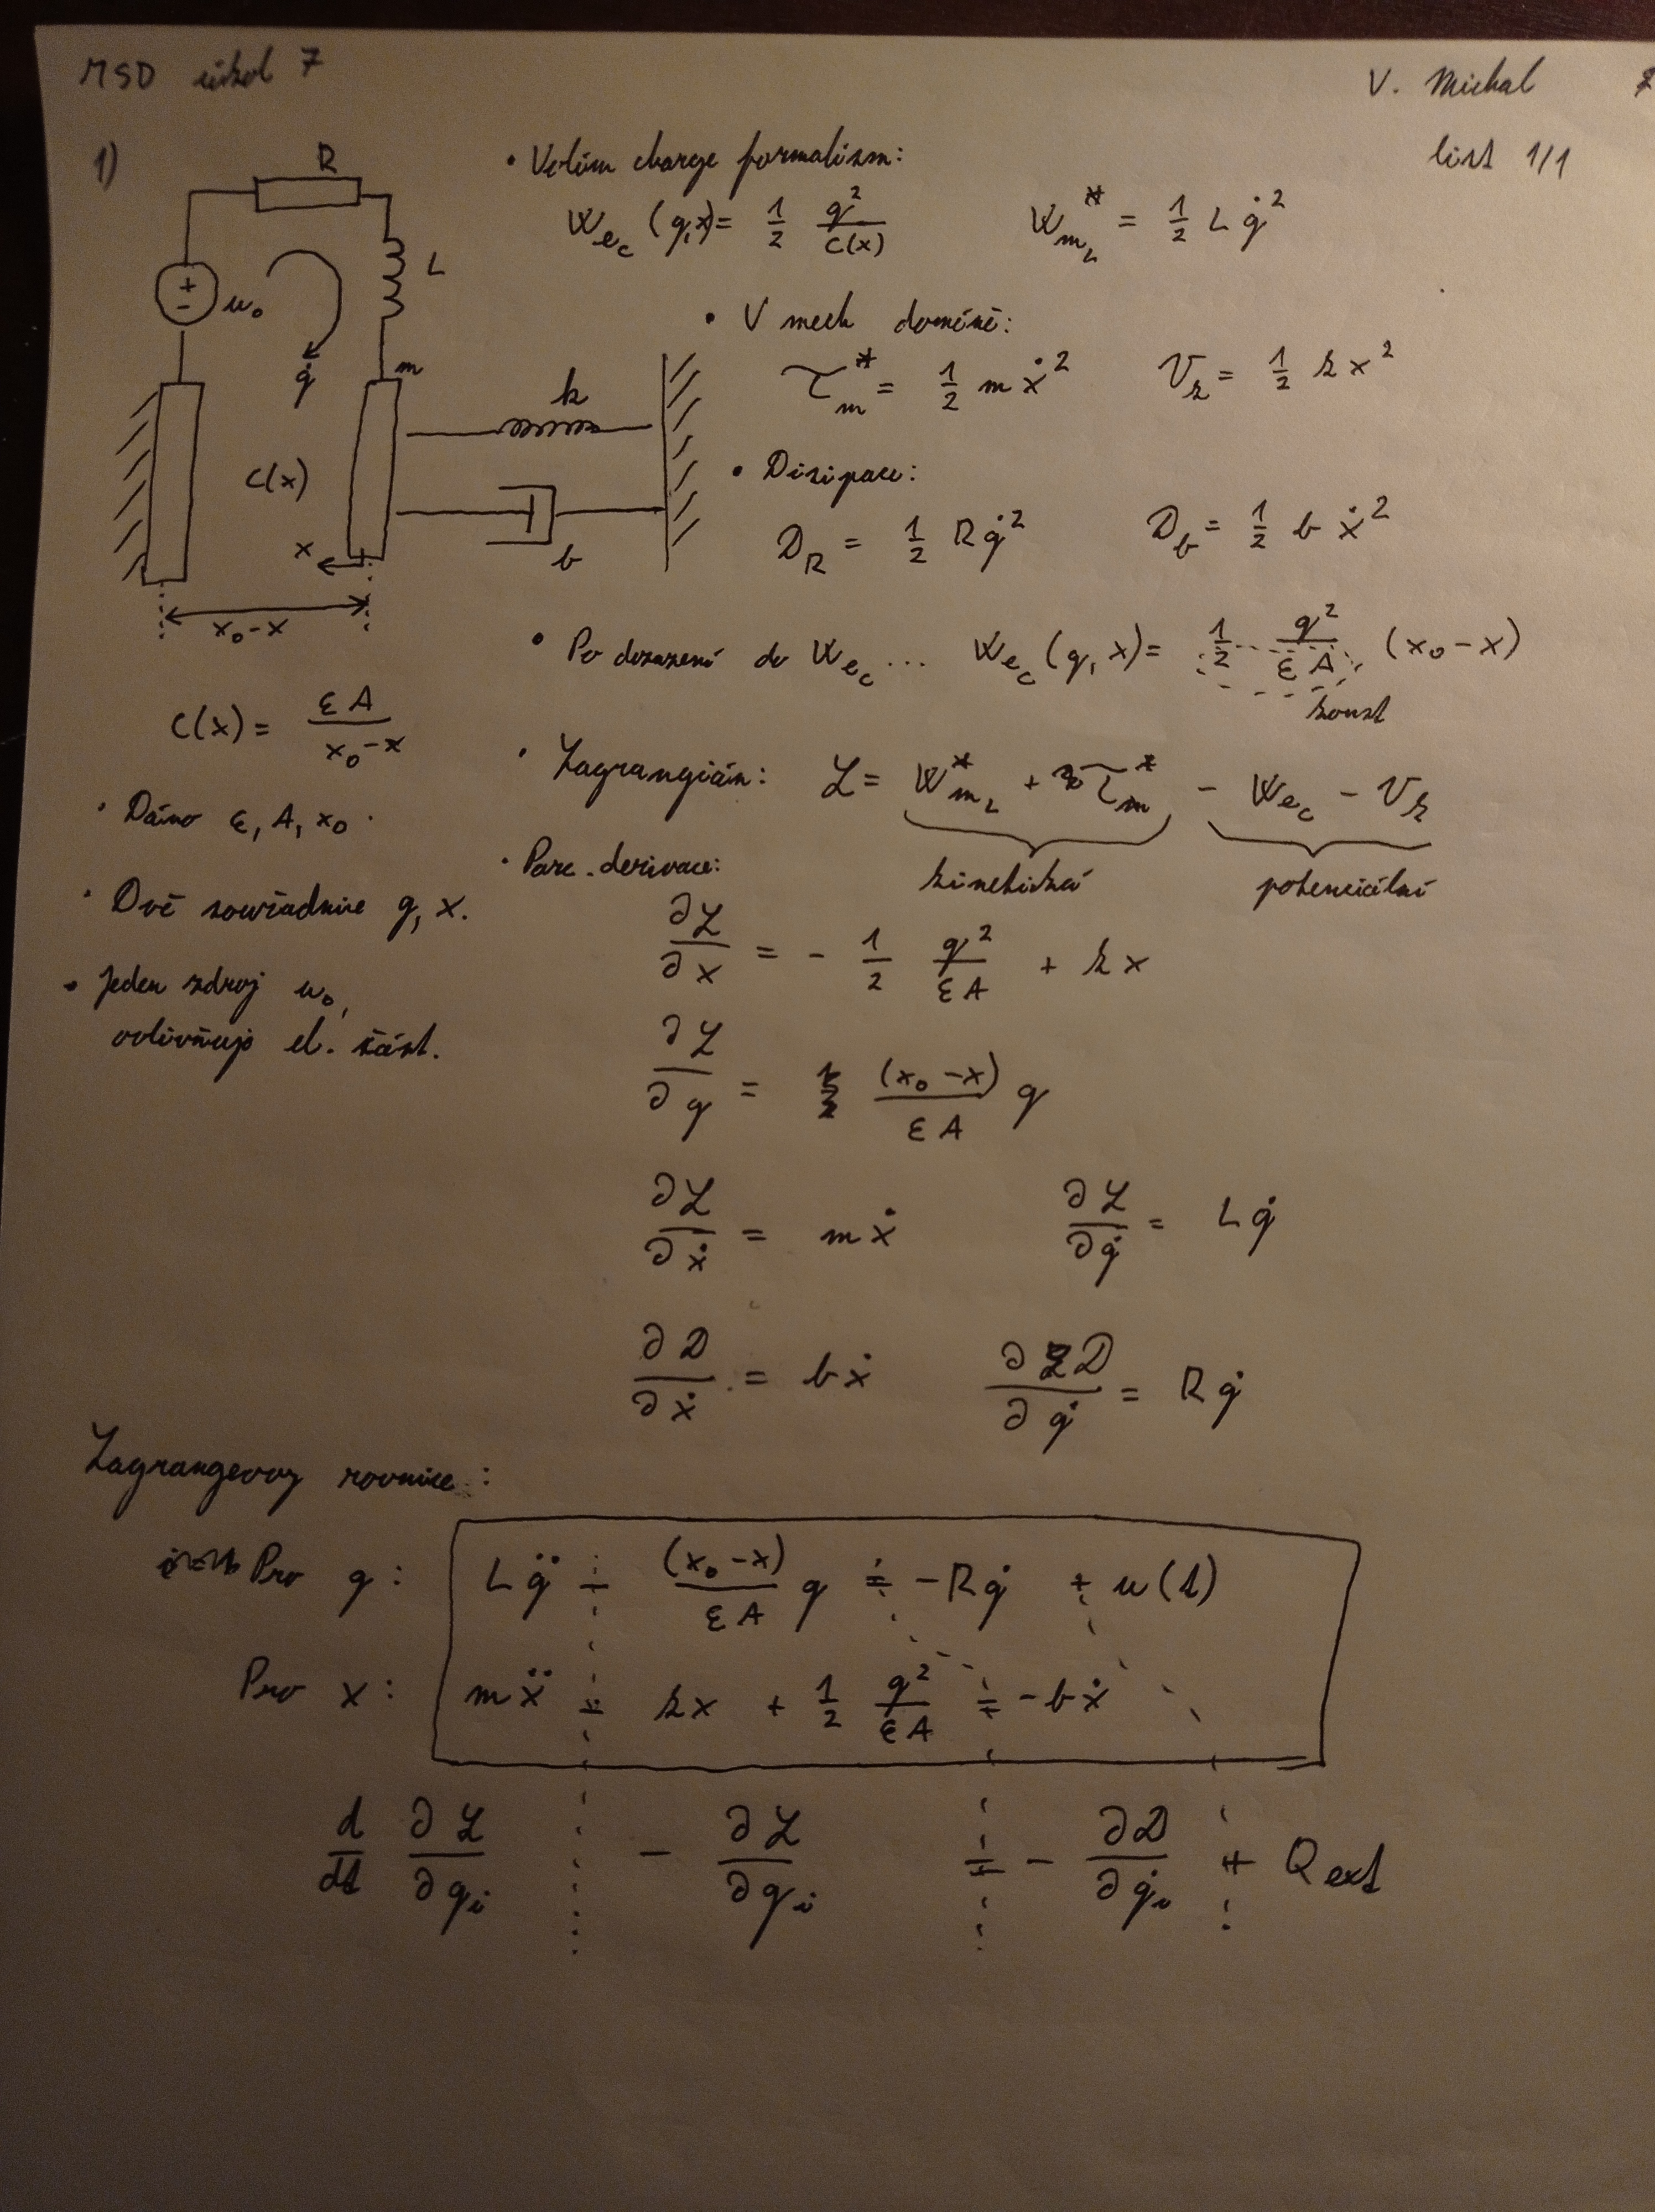 MSD úkol 7
V. Michal
list 1/1
1)
R
L
+
-
u₀
q̇
m
k
C(x)
x
b
x₀-x
C(x) = εA / (x₀-x)
· Dáno ε, A, x₀.
· Dvě souřadnice q, x.
• Jeden zdroj u₀,
ovlivňuje el. část.
• Volím charge formalism:
W_eC (q,x) = 1/2 q²/C(x)    W*_mL = 1/2 L q̇²
• V mech doméně:
T*_m = 1/2 m ẋ²    V_k = 1/2 k x²
• Disipace:
D_R = 1/2 R q̇²    D_b = 1/2 b ẋ²
• Po dosazení do W_eC ... W_eC (q, x) = 1/2 q²/(εA) (x₀-x)
konst
· Lagrangián: L = W*_mL + T*_m - W_eC - V_k
kinetická    potenciální
· Parc. derivace:
∂L/∂x = - 1/2 q²/(εA) + kx
∂L/∂q = (x₀-x)/(εA) q
∂L/∂ẋ = mẋ    ∂L/∂q̇ = Lq̇
∂D/∂ẋ = bẋ    ∂D/∂q̇ = Rq̇
Lagrangeovy rovnice:
Pro q: Lq̈ - (x₀-x)/(εA) q = -Rq̇ + u(t)
Pro x: mẍ - kx + 1/2 q²/(εA) = -bẋ
d/dt ∂L/∂q̇ᵢ - ∂L/∂qᵢ = - ∂D/∂q̇ᵢ + Q ext